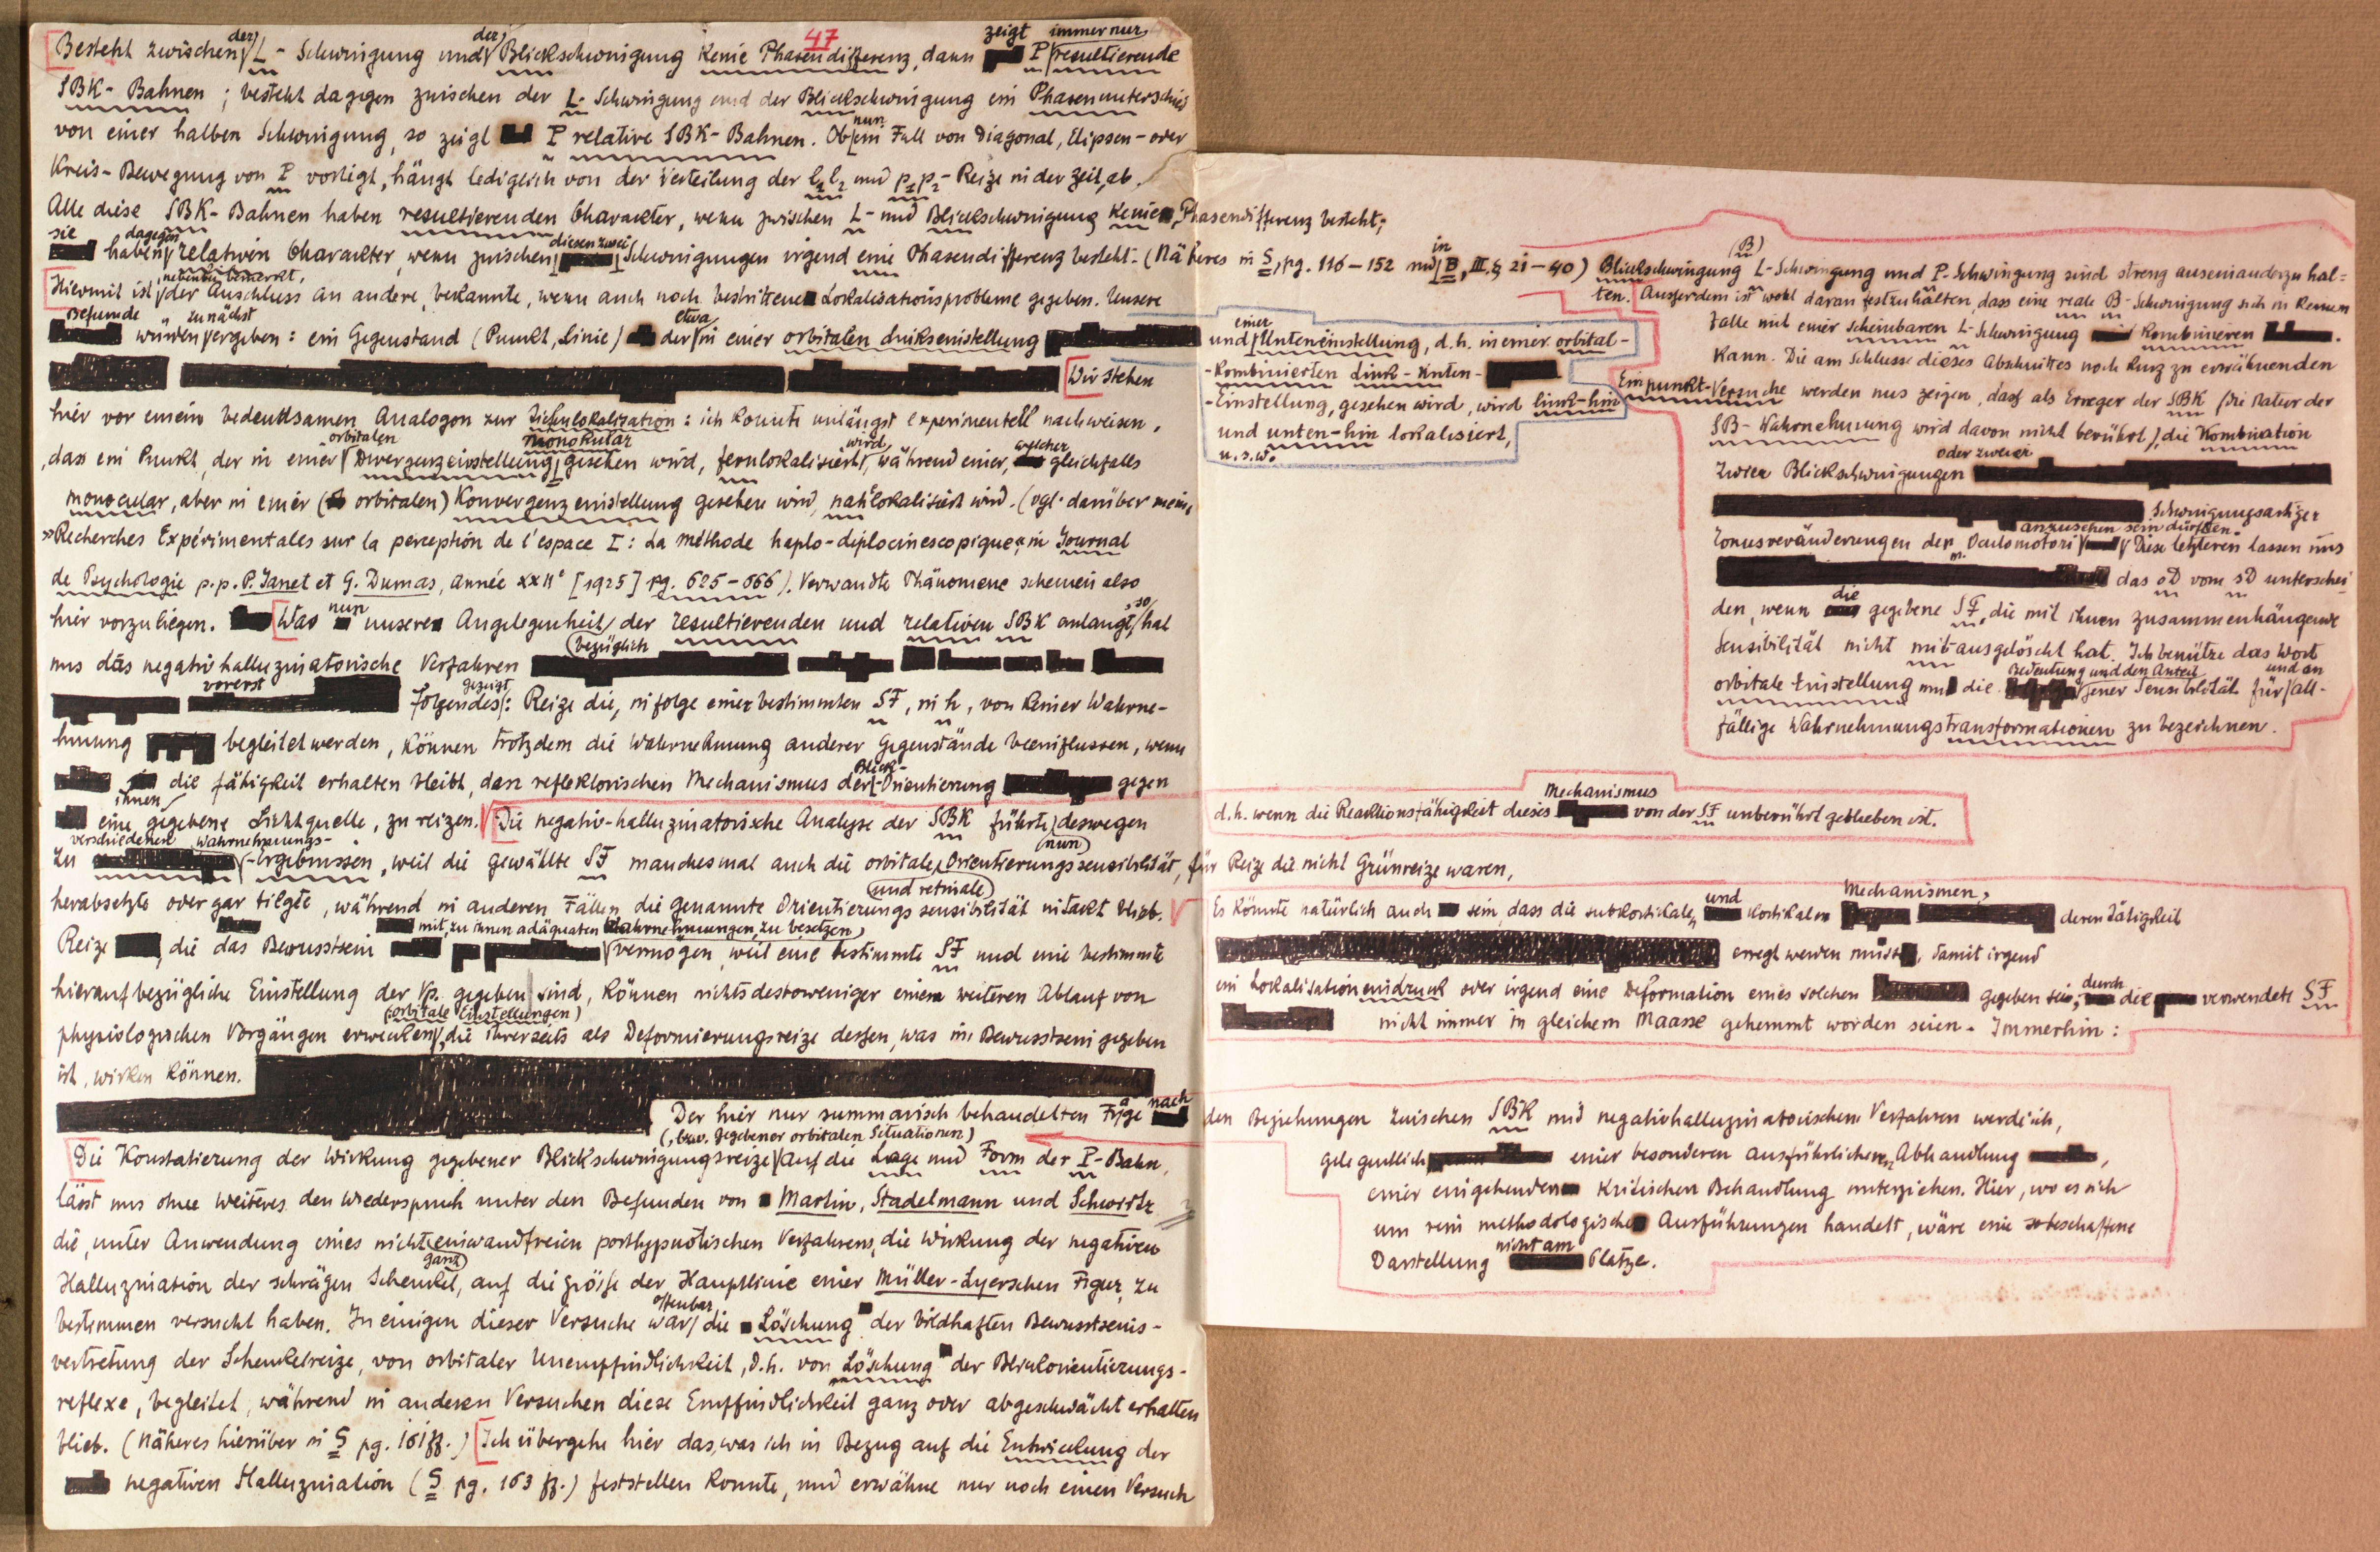 47
Besteht zwischen der L- Schwingung und der Blickschwingung keine Phasendifferenz, dann zeigt P immer nur resultierende
SBK-Bahnen; besteht dagegen zwischen der L-Schwingung und der Blickschwingung ein Phasenunterschied
von einer halben Schwingung, so zeigt P relative SBK-Bahnen. Ob nun ein Fall von Diagonal, Elipsen- oder
Kreis-Bewegung von P vorligt, hängt ledigleich von der Verteilung der l1 l2 und p1 p2-Reize in der Zeit ab.
Alle diese SBK-Bahnen haben resultierenden Charakter, wenn zwischen L- und Blickschwingung keine Phasendifferenz besteht;
sie haben dagegen relativen Charakter, wenn zwischen diesen zwei Schwingungen irgend eine Phasendifferenz besteht. (Näheres in S, pg. 116-152 und in B, III. § 21-40)
Hiermit ist nebenbei bemerkt, der Anschluss an andere, bekannte, wenn auch noch bestrittene Lokalisationsprobleme gegeben. Unsere
Befunde würden zunächst ergeben: ein Gegenstand (Punkt, Linie) der etwa in einer orbitalen Linkseinstellung
und einer Unteneinstellung, d.h. in einer orbital-
-kombinierten Link-Unten-
-Einstellung, gesehen wird, wird link-hin
und unten-hin lokalisiert,
u.s.w.
Wir stehen
hier vor einem bedeutsamen Analogon zur Tiefenlokalisation: ich konnte unlängst experimentell nachweisen,
dass ein Punkt, der in einer orbitalen Divergenzeinstellung monokular gesehen wird, fernlokalisiert wird, während einer, welcher gleichfalls
monocular, aber in einer (orbitalen) Konvergenzeinstellung gesehen wird, nahlokalisiert wird. (vgl. darüber meine
»Recherches Expérimentales sur la perception de l'espace I: La méthode haplo-diplocinescopique« in Journal
de Psychologie p.p. P. Janet et G. Dumas, année XXIIe [1925] pg. 625-666). Verwandte Phänomene scheinen also
hier vorzuliegen. Was nun unsere Angelegenheit bezüglich der resultierenden und relativen SBK anlangt, so hat
uns das negativhalluzinatorische Verfahren
vorerst Folgendes gezeigt: Reize die, infolge einer bestimmten SF, in h, von keiner Wahrne-
hmung begleitet werden, können trotzdem die Wahrnehmung anderer Gegenstände beeinflussen, wenn
ihnen die Fähigkeit erhalten bleibt, den reflektorischen Mechanismus der Blick-Orientierung gegen
eine gegebene Lichtquelle, zu reizen.
d.h. wenn die Reaktionsfähigkeit dieses Mechanismus von der SF unberührt geblieben ist.
Die negativ-halluzinatorische Analyse der SBK führte nun deswegen
zu verschiedenen Wahrnehmungs-Ergebnissen, weil die gewählte SF manchesmal auch die orbitale und retinale Orientierungssensibilität, für Reize die nicht Grünreize waren,
herabsetzte oder gar tilgte, während in anderen Fällen die genannte Orientierungssensibilität intakt blieb.
Es könnte natürlich auch sein, dass die subkortikalen und kortikalen Mechanismen, deren Tätigkeit
erregt werden müsste, damit irgend
ein Lokalisationseindruck oder irgend eine Deformation eines solchen gegeben sei, durch die verwendete SF
nicht immer in gleichem Maasse gehemmt worden seien. Immerhin:
Reize, die das Bewusstsein mit, zu ihnen adäquaten Wahrnehmungen, zu besetzen, vermögen, weil eine bestimmte SF und eine bestimmte
hierauf bezügliche Einstellung der Vp. gegeben sind, können nichtsdestoweniger einen weiteren Ablauf von
physiologischen Vorgängen erwirken (: orbitale Einstellungen), die ihrerseits als Deformierungsreize dessen, was im Bewusstsein gegeben
ist, wirken können.
Der hier nur summarisch behandelten Frage nach den Beziehungen zwischen SBK und negativhalluzinatorischem Verfahren werde ich,
gelegentlich einer besonderen ausführlicheren Abhandlung,
einer eingehenden kritischen Behandlung unterziehen. Hier, wo es sich
um rein methodologische Ausführungen handelt, wäre eine so beschaffene
Darstellung nicht am Platze.
Die Konstatierung der Wirkung gegebener Blickschwingungsreize (, bzw. gegebener orbitalen Situationen) auf die Lage und Form der P-Bahn,
lässt uns ohne Weiteres den Wiederspruch unter den Befunden von Martin, Stadelmann und Schwirtz
die, unter Anwendung eines nicht ganz einwandfreien posthypnotischen Verfahrens, die Wirkung der negativen
Halluzination der schrägen Schenkel, auf die Grösse der Hauptlinie einer Müller-Lyerschen Figur, zu
bestimmen versucht haben. In einigen dieser Versuche war offenbar die Löschung der bildhaften Bewusstseins-
vertretung der Schenkelreize, von orbitaler Unempfindlichkeit, d.h. von Löschung der Blickorientierungs-
reflexe, begleitet, während in anderen Versuchen diese Empfindlichkeit ganz oder abgeschwächt erhalten
blieb. (Näheres hierüber in S pg. 161ff.) Ich übergehe hier das, was ich in Bezug auf die Entwicklung der
negativen Halluzination (S pg. 163 ff.) feststellen konnte, und erwähne nur noch einen Versuch
Blickschwingung (B) L-Schwingung und P-Schwingung sind streng auseinanderzuhal-
ten. Ausserdem ist wohl daran festzuhalten, dass eine reale B-Schwingung sich in keinem
Falle mit einer scheinbaren L-Schwingung kombinieren
kann. Die am Schlusse dieses Abschnittes noch kurz zu erwähnenden
Einpunkt-Versuche werden uns zeigen, dass als Erreger der SBK (die Natur der
SB-Wahrnehmung wird davon nicht berührt), die Kombination
zweier Blickschwingungen oder zweier
schwingungsartiger
Tonusveränderungen der Oculomotori anzusehen sein dürften. Diese letzteren lassen uns
das oD vom sD unterschei-
den, wenn die gegebene SF, die mit ihnen zusammenhängende
Sensibilität nicht mit-ausgelöscht hat. Ich benütze das Wort
orbitale Einstellung um die Bedeutung und den Anteil jener Sensibilität für und an all-
fällige Wahrnehmungstransformationen zu bezeichnen.